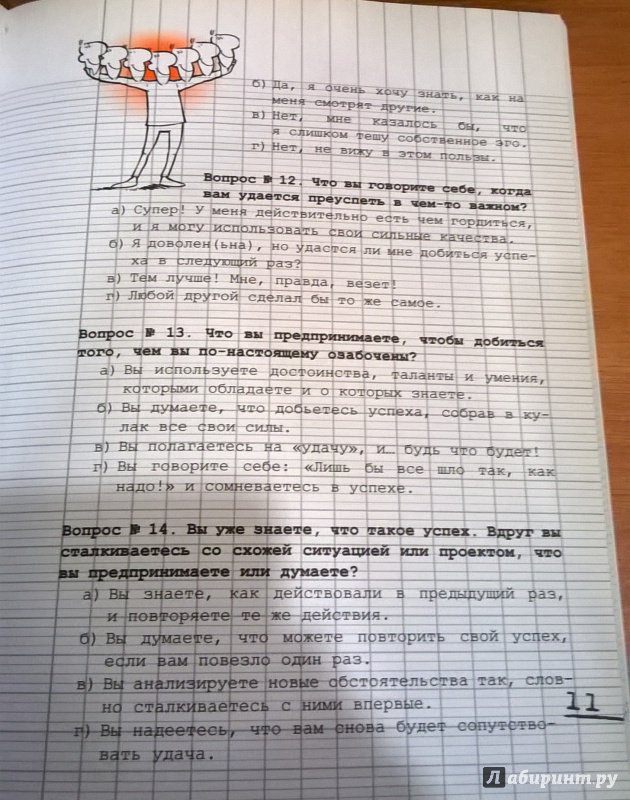 б) Да, я очень хочу знать, как на
меня смотрят другие.
в) Нет, мне казалось бы, что
я слишком тешу собственное эго.
г) Нет, не вижу в этом пользы.
Вопрос № 12. Что вы говорите себе, когда
вам удается преуспеть в чем-то важном?
а) Супер! У меня действительно есть чем гордиться,
и я могу использовать свои сильные качества.
б) Я доволен(ьна), но удастся ли мне добиться успе-
ха в следующий раз?
в) Тем лучше! Мне, правда, везет!
г) Любой другой сделал бы то же самое.
Вопрос № 13. Что вы предпринимаете, чтобы добиться
того, чем вы по-настоящему озабочены?
а) Вы используете достоинства, таланты и умения,
которыми обладаете и о которых знаете.
б) Вы думаете, что добьетесь успеха, собрав в ку-
лак все свои силы.
в) Вы полагаетесь на «удачу», и… будь что будет!
г) Вы говорите себе: «Лишь бы все шло так, как
надо!» и сомневаетесь в успехе.
Вопрос № 14. Вы уже знаете, что такое успех. Вдруг вы
сталкиваетесь со схожей ситуацией или проектом, что
вы предпринимаете или думаете?
а) Вы знаете, как действовали в предыдущий раз,
и повторяете те же действия.
б) Вы думаете, что можете повторить свой успех,
если вам повезло один раз.
в) Вы анализируете новые обстоятельства так, слов-
но сталкиваетесь с ними впервые.
г) Вы надеетесь, что вам снова будет сопутство-
вать удача.
11
Лабиринт.ру